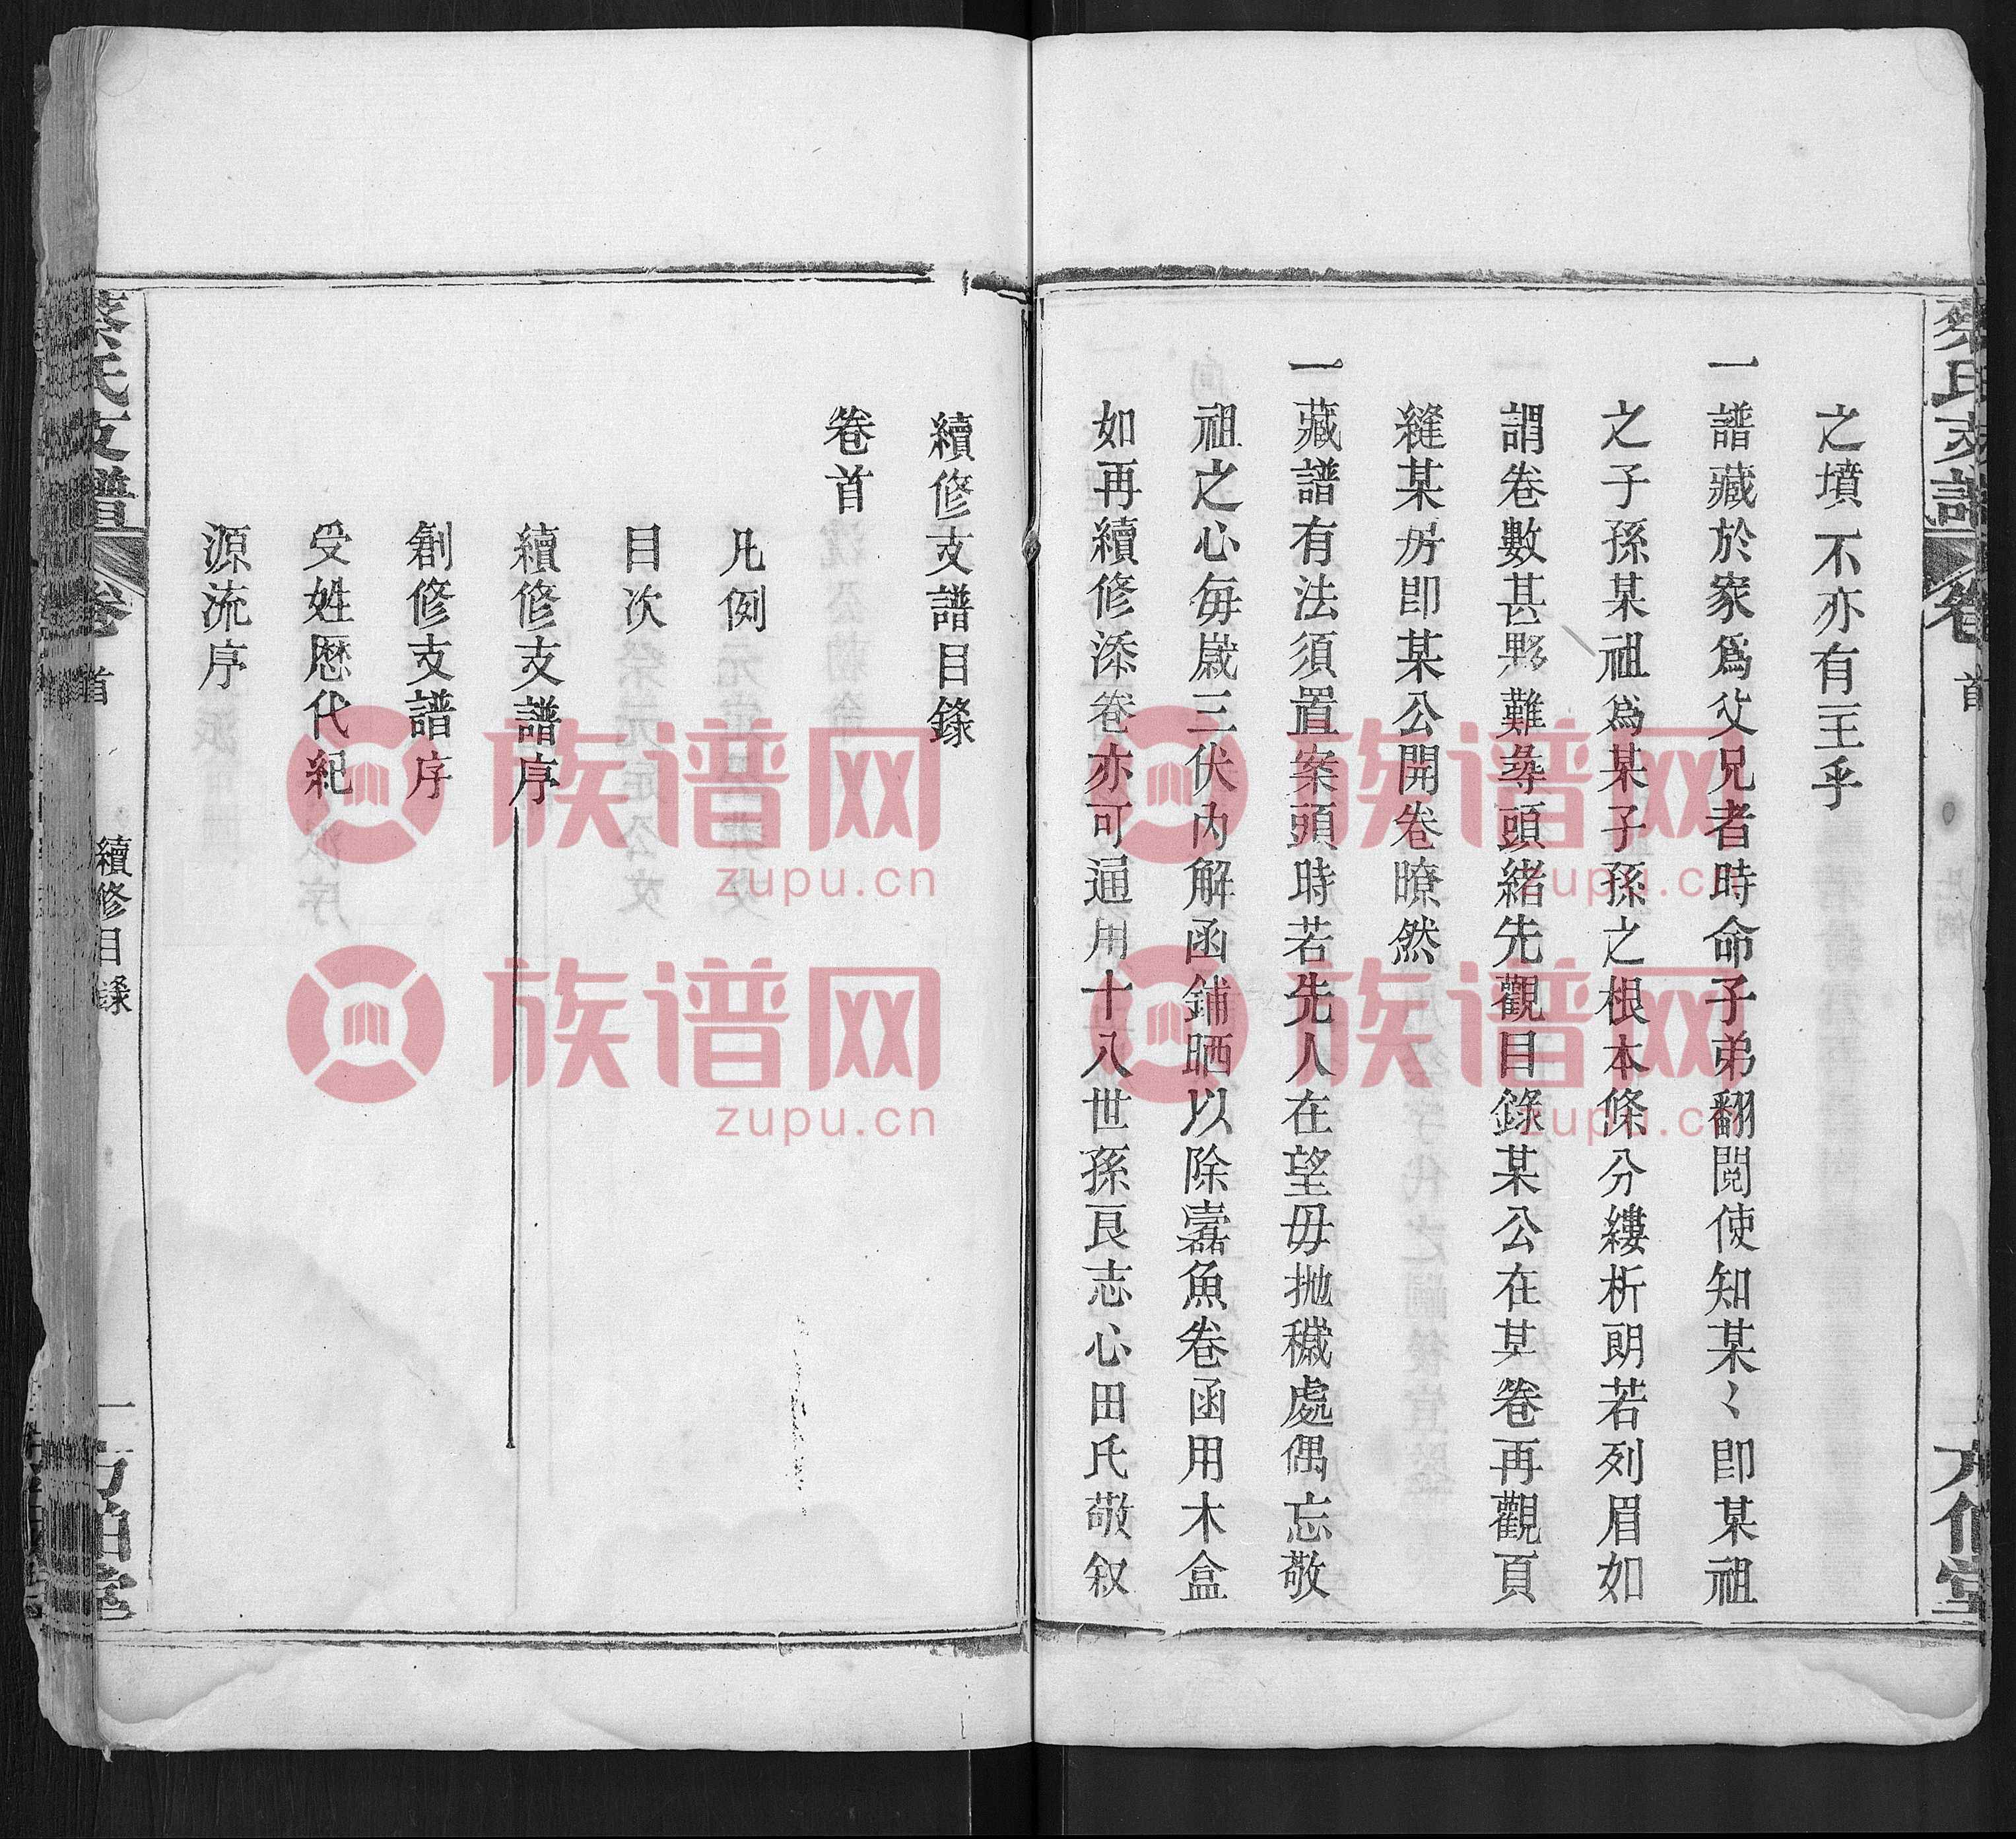 之墳不亦有主乎
一譜藏於家爲父兄者時命子弟翻閱使知某〻卽某祖
之子孫某祖爲某子孫之根本條分縷析朗若列眉如
謂卷數甚夥難尋頭緒先觀目錄某公在某卷再觀頁
縫某房卽某公開卷瞭然
一藏譜有法須置案頭時若先人在望毋抛穢處偶忘敬
祖之心每歲三伏內解函鋪晒以除蠧魚卷函用木盒
如再續修添卷亦可通用十八世孫良志心田氏敬叙
續修支譜目錄
卷首
凡例
目次
續修支譜序
創修支譜序
受姓歷代紀
源流序
蔡氏支譜
卷
首
續修目錄
一
方伯堂
族谱网
zupu.cn
族谱网
zupu.cn
族谱网
zupu.cn
族谱网
zupu.cn